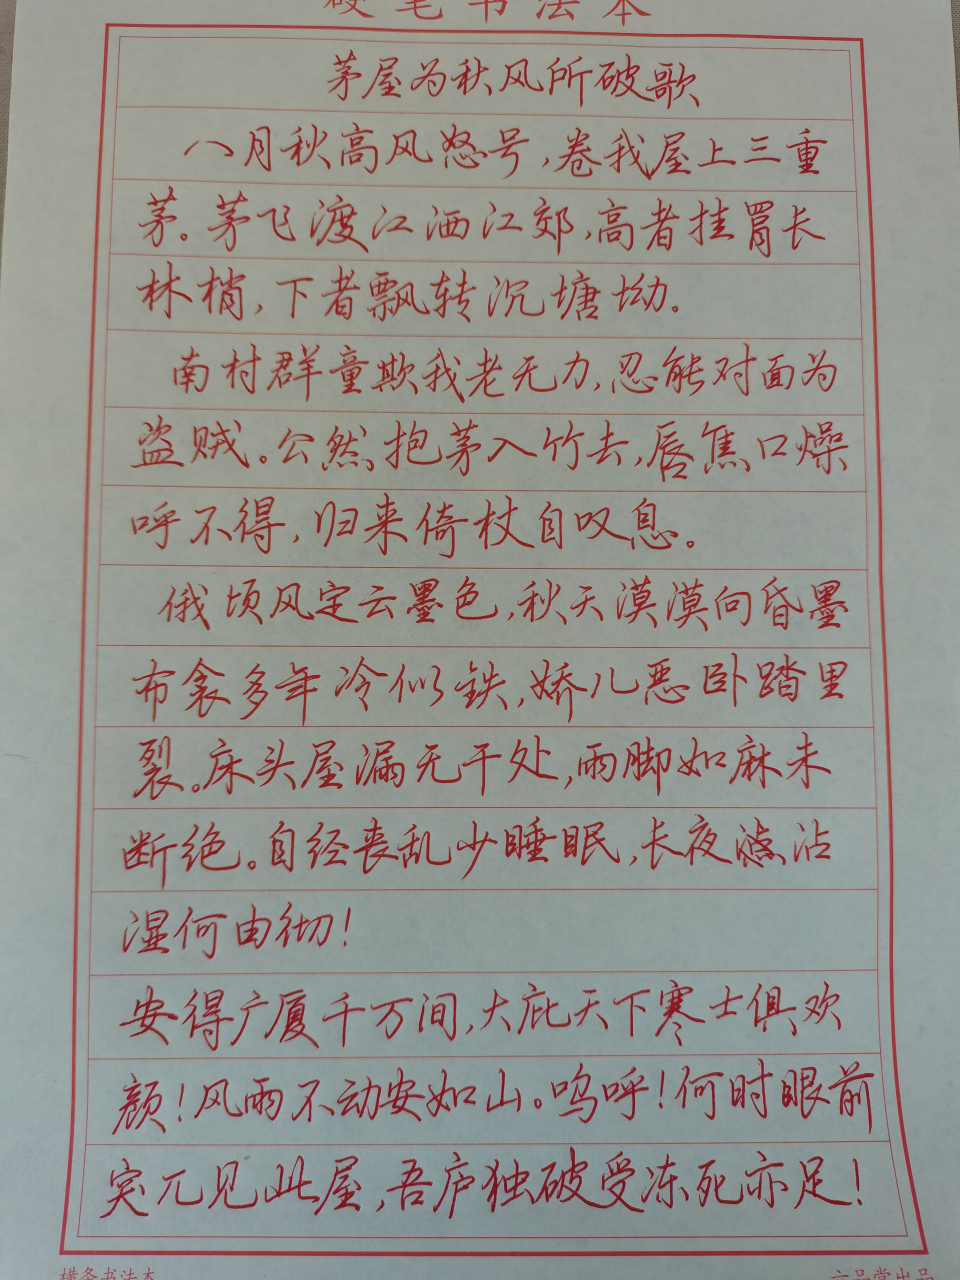 硬笔书法本
茅屋为秋风所破歌
八月秋高风怒号,卷我屋上三重
茅。茅飞渡江洒江郊,高者挂罥长
林梢,下者飘转沉塘坳。
南村群童欺我老无力,忍能对面为
盗贼。公然抱茅入竹去,唇焦口燥
呼不得,归来倚杖自叹息。
俄顷风定云墨色,秋天漠漠向昏墨
布衾多年冷似铁,娇儿恶卧踏里
裂。床头屋漏无干处,雨脚如麻未
断绝。自经丧乱少睡眠,长夜沾
湿何由彻!
安得广厦千万间,大庇天下寒士俱欢
颜!风雨不动安如山。呜呼!何时眼前
突兀见此屋,吾庐独破受冻死亦足!
横条书法本
六品堂出品